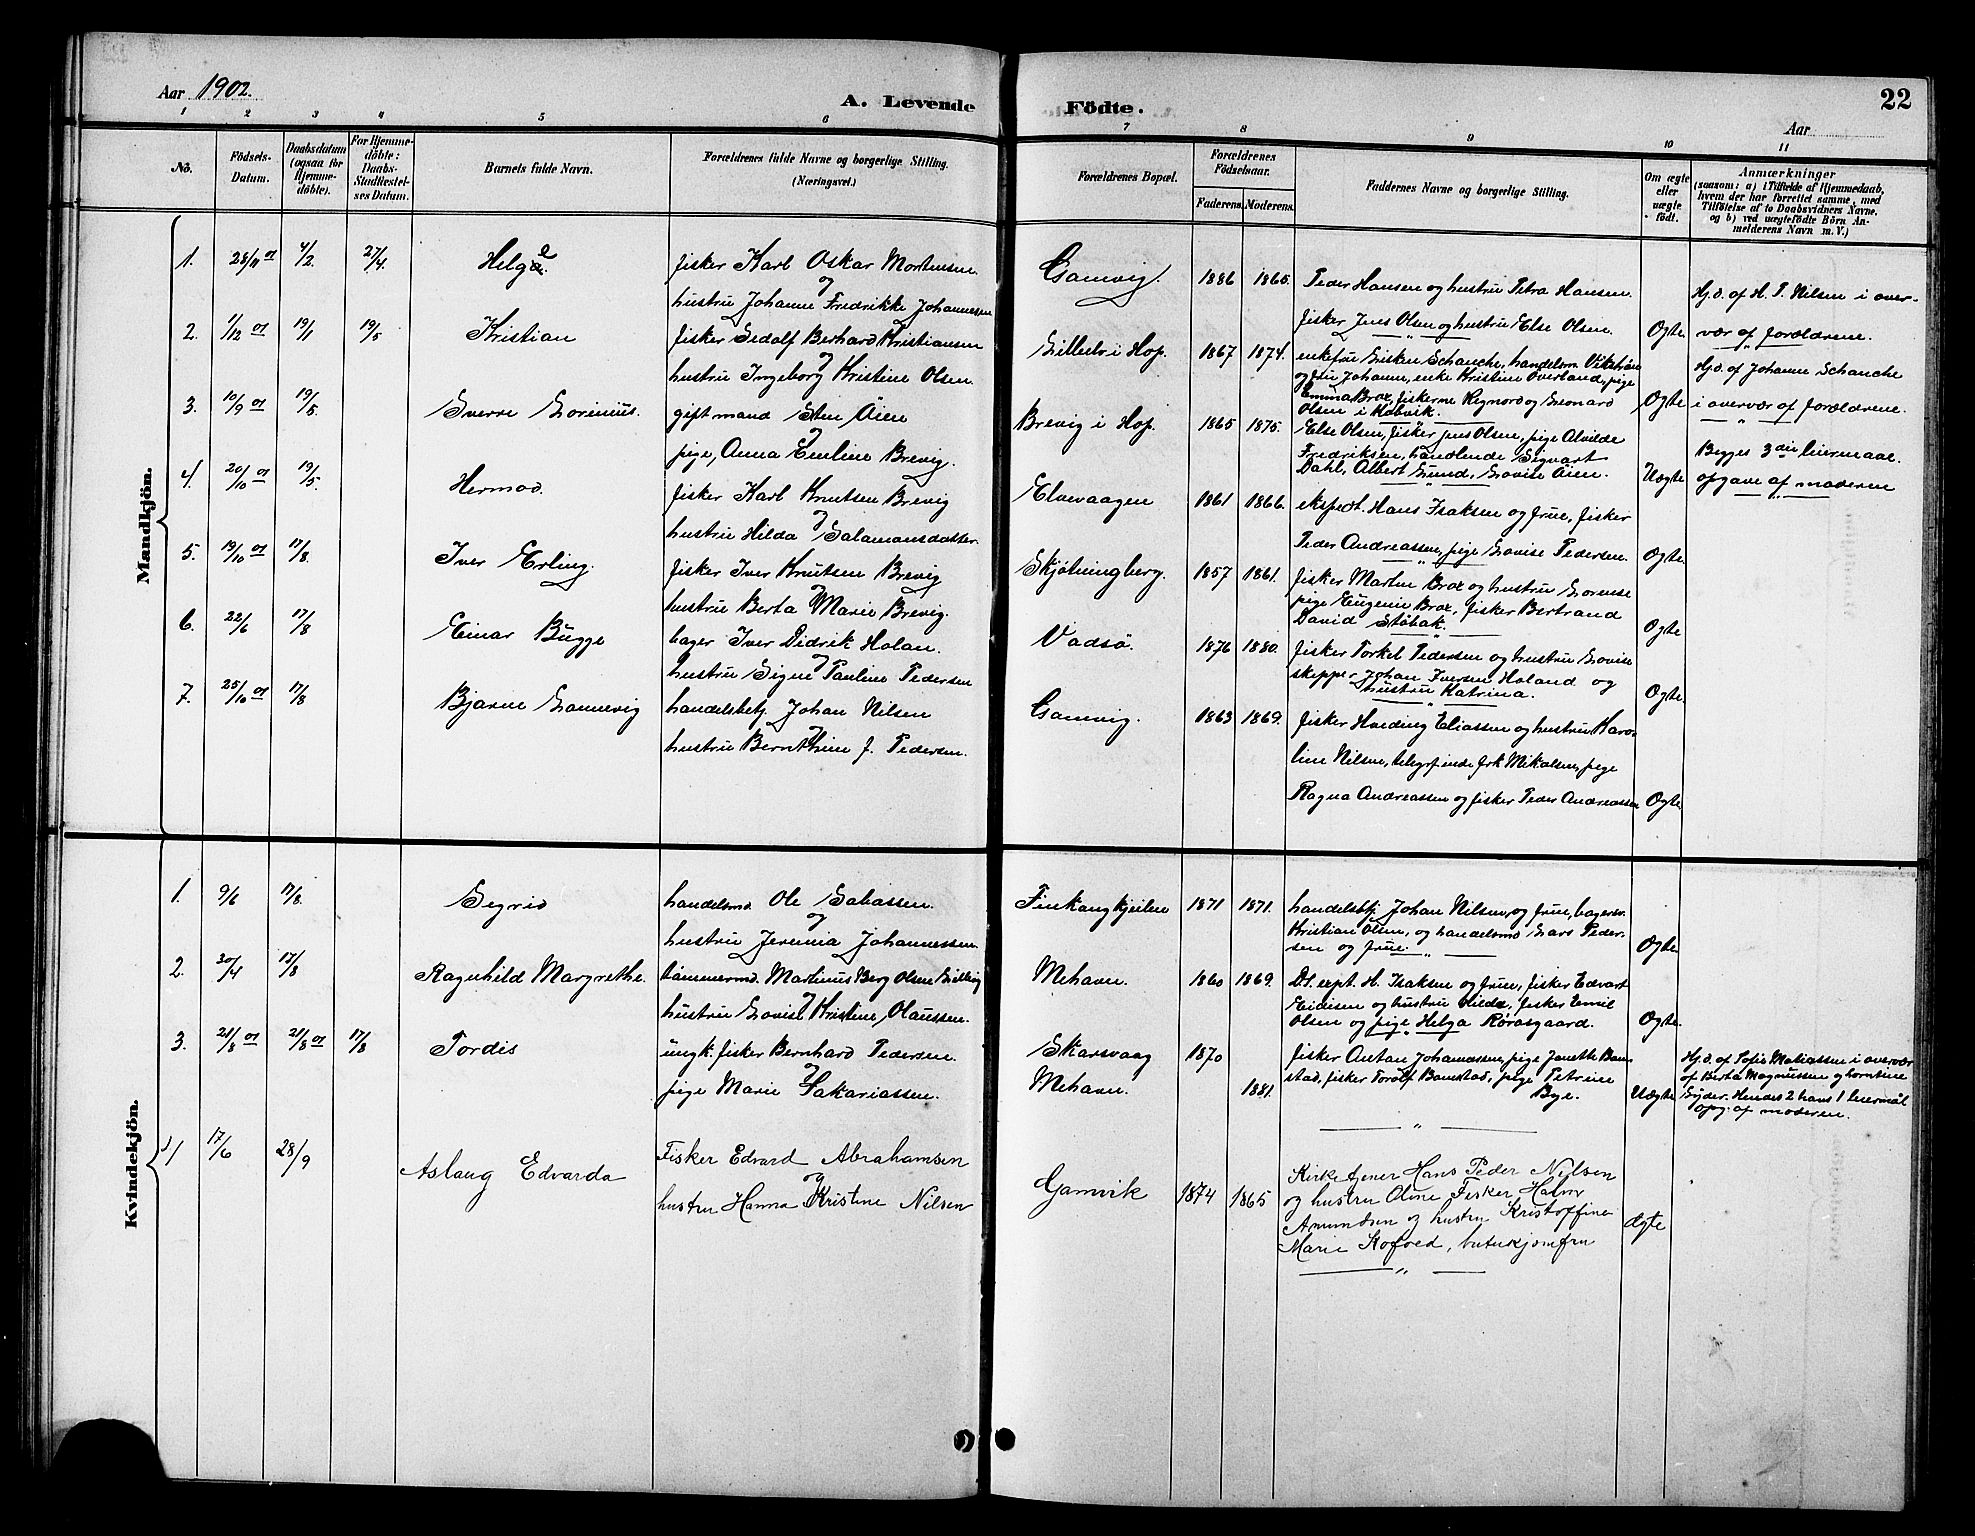 Aar 1902.
A. Levende Födte.
22
Aar
1 2 3 4 5 6 7 8 9 10 11
No.
Födsels-Datum.
Daabsdatum (ogsaa for Hjemme-döbte).
For Hjemme-döbte: Daabs-Stadfæstel-ses Datum.
Barnets fulde Navn.
Forældrenes fulde Navne og borgerlige Stilling.
(Næringsvei.)
Forældrenes Bopæl.
Forældrenes Födselsaar.
Faderens. Moderens.
Faddernes Navne og borgerlige Stilling.
Om ægte eller uægte födt.
Anmærkninger
(saasom: a) i Tilfælde af Hjemmedaab,
hvem der har forrettet samme, med
Tilföielse af to Daabsvidners Navne,
og b) ved uægtefödte Börn An-
melderens Navn m. V.)
Mandkjön.
1. 28/11 01 4/2. 27/4. Helge. fisker Karl Oskar Mortensen
og
hustru Johanne Fredrikke Johannessen
Gamvig. 1886 1865. Peder Hansen og hustru Petra Hansen.
fisker Jens Olsen og hustru Else Olsen. Ægte
Hj.d. af H. P. Nilsen i over-
vær af forældrene.
2. 1/12 01 19/1 19/5 Kristian fisker Sedolf Berhard Kristiansen
og
hustru Ingeborg Kristine Olsen.
i Hop. 1867 1874. enkefru Lisken Schanche, handelsm.
og fru Johanne, enke Kristine Overland, pige
Emma Brox, fiskerne Regnord og Leonard
Olsen i Kobvik. Ægte
Hj.d. af Johanne Schanche
i overvær af forældrene.
3. 10/9 01 19/5. Sverre Lorinius. gift mand Sten Öien
og
pige, Anna Emiline Brevig.
Brevig i Hop. 1865 1875. Else Olsen, fisker Jens Olsen, pige Alvilde
Fredriksen, handlende Sigvart
Dahl, Albert Lund, Lovise Öien. Uægte
Begges 3die leiermaal
opgave af moderen
4. 20/10 01 19/5. Hermod. fisker Karl Knutsen Brevig
og
hustru Hilda Salamonsdatter.
Elvevaagen 1861 1866. eksped. Hans Isaksen og frue, fisker
Peder Andreassen, pige Lovise Pedersen. Ægte.
5. 19/10 01 17/8. Iver Erling. fisker Iver Knutsen Brevig
og
hustru Berta Marie Brevig.
Skjötningberg. 1857 1861. fisker Martin Brox og hustru Lorense
pige Eugenie Brox, fisker Bertrand
David Stöbak. Ægte
6. 22/6 17/8 Einar Bugge bager Iver Didrik Holan.
og
hustru Signe Pauline Pedersen
Vadsö. 1876 1880. fisker Torkel Pedersen og hustru Lovise
skipper Johan Iversen Holand og
hustru Katrina. Ægte.
7. 25/10 01 17/8 Bjarne Sannevig handelsbetj. Johan Nilsen
og
hustru Bernthine J. Pedersen.
Gamvig. 1863 1869. fisker Hveding Eliassen og hustru Karo-
line Nilsen, telegrfinde frk Mikalsen, pige
Ragna Andreassen og fisker Peder Andreassen Ægte.
Kvindekjön.
1. 9/6 17/8. Sigrid handelsmd. Ole Sabassen.
og
hustru Jeremia Johannessen.
Finkongkjeilen 1871 1871. handelsbtj. Johan Nilsen, og frue, bager
Kristian Olsen, og handelsmd Lars Peder-
sen og frue. Ægte.
2. 30/4 17/8 Ragnhild Margrethe. tömmermd. Martinus Berg Olsen
og
hustru Lovise Kristine Olaussen.
Mehavn. 1860 1869. D.s. expt. H. Isaksen og frue, fisker Edvart
Eidisen og hustru Hilda, fisker Emil
Olsen og pige Helga Rörosgaard. Ægte.
3. 21/8 01 21/8 01 17/8 Tordis ungk. fisker Bernhard Pedersen.
og
pige Marie Sakariassen.
Skarsvaag 1870
Mehavn. 1881.
fisker Antan Johannassen, pige Janette Ban-
stad, fisker Torolf Banestad, pige Petrine
Bye. Uægte
Hj.d. af Sofie Matiassen i overvær
af Berta Magnussen og
Hendes 2 hans 1 leiermål
opg. af moderen.
4 17/6 28/9 Aslaug Edvarda Fisker Edvard Abrahamsen
og
hustru Hanna Kristine Nilsen
Gamvik 1874 1865 Kirketjener Hans Peder Nilsen
og hustru Oline Fisker
Amundsen og hustru Kristoffine
Marie Kofoed, butikjomfru
ægte